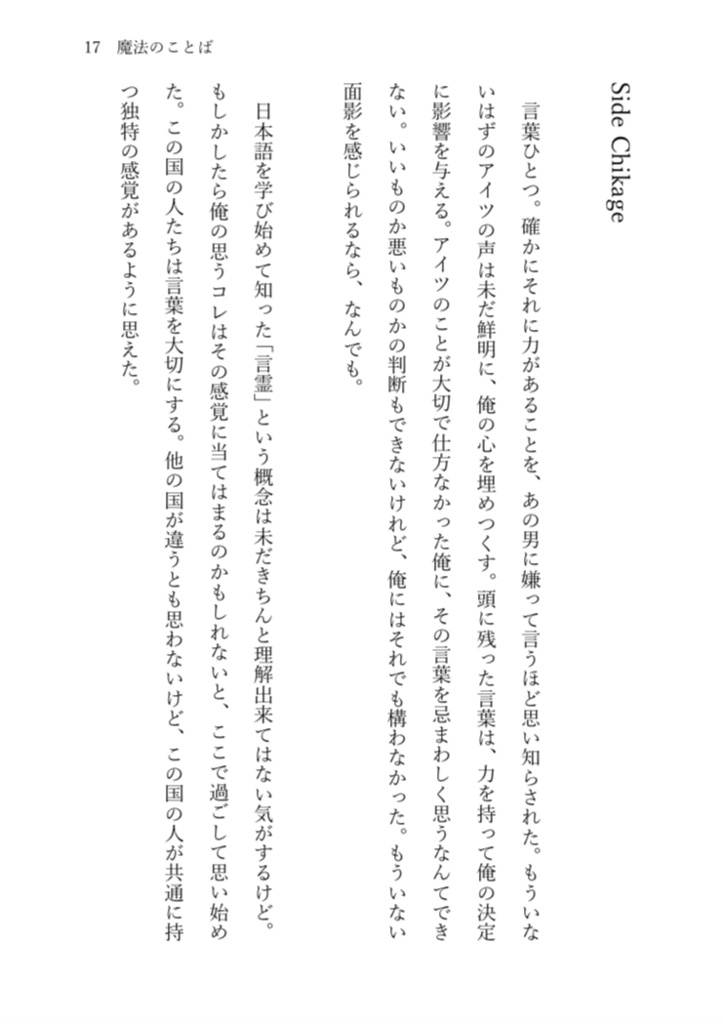 17 魔法のことば
Side Chikage
言葉ひとつ。確かにそれに力があることを、あの男に嫌って言うほど思い知らされた。もういな
いはずのアイツの声は未だ鮮明に、俺の心を埋めつくす。頭に残った言葉は、力を持って俺の決定
に影響を与える。アイツのことが大切で仕方なかった俺に、その言葉を忌まわしく思うなんてでき
ない。いいものか悪いものかの判断もできないけれど、俺にはそれでも構わなかった。もういない
面影を感じられるなら、なんでも。
日本語を学び始めて知った「言霊」という概念は未だきちんと理解出来てはない気がするけど。
もしかしたら俺の思うコレはその感覚に当てはまるのかもしれないと、ここで過ごして思い始め
た。この国の人たちは言葉を大切にする。他の国が違うとも思わないけど、この国の人が共通に持
つ独特の感覚があるように思えた。